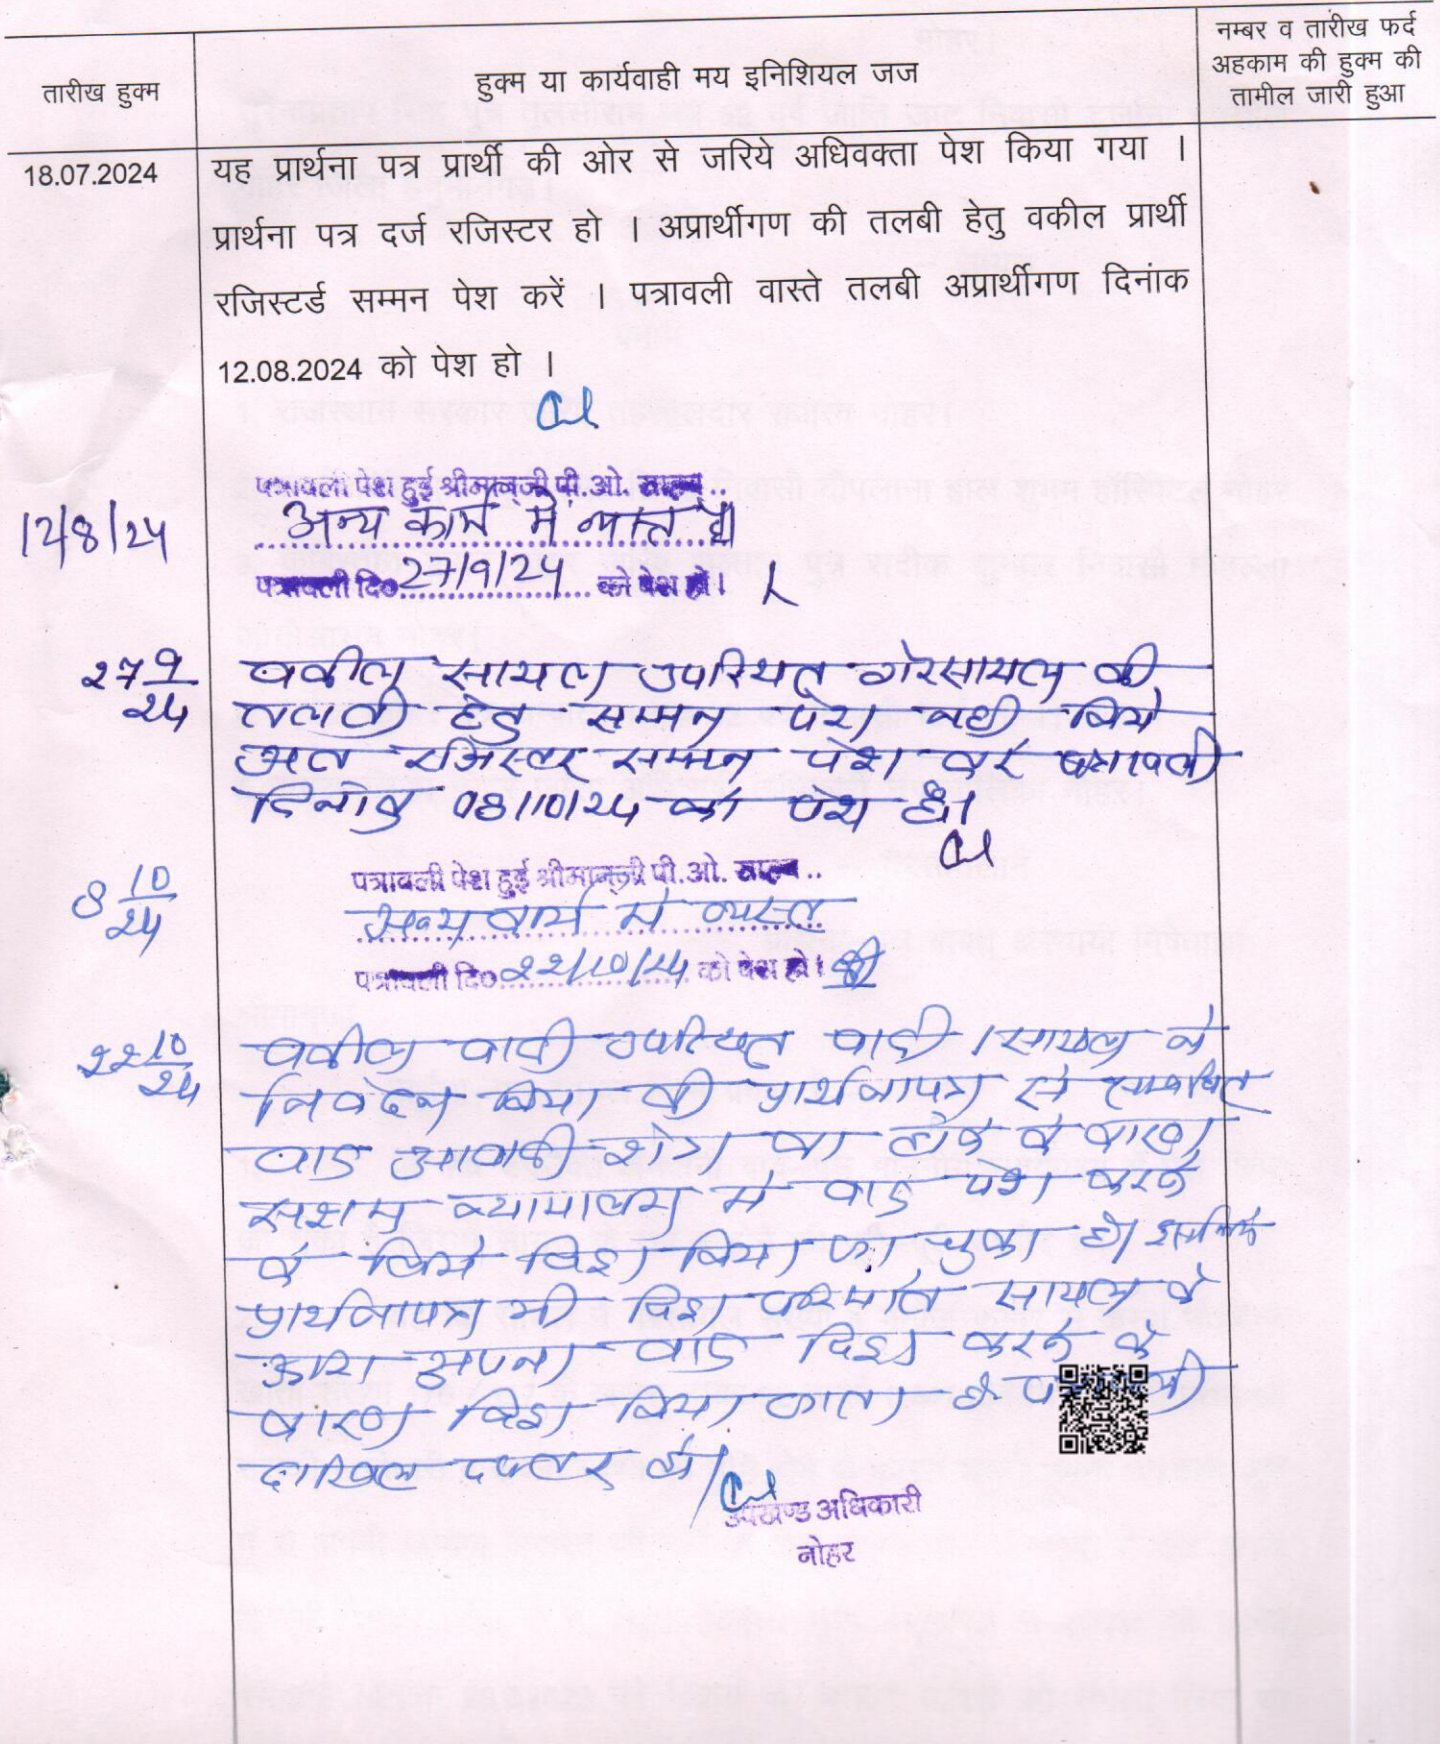 तारीख हुक्म
हुक्म या कार्यवाही मय इनिशियल जज
नम्बर व तारीख फर्द
अहकाम की हुक्म की
तामील जारी हुआ
18.07.2024
यह प्रार्थना पत्र प्रार्थी की ओर से जरिये अधिवक्ता पेश किया गया ।
प्रार्थना पत्र दर्ज रजिस्टर हो । अप्रार्थीगण की तलबी हेतु वकील प्रार्थी
रजिस्टर्ड सम्मन पेश करें । पत्रावली वास्ते तलबी अप्रार्थीगण दिनांक
12.08.2024 को पेश हो ।
12/8/24
पत्रावली पेश हुई श्रीमान्जी पी.ओ. साहब..
अन्य कार्य में व्यस्त है।
पत्रावली दि०27/9/24 को पेश हो।
27 9/24
वकील सायल उपस्थित गेरसायल की
तलबी हेतु सम्मन पेश नही किये
अत रजिस्टर सम्मन पेश करे पत्रावली
दिनांक 08/10/24 को पेश हो।
8 10/24
पत्रावली पेश हुई श्रीमान्जी पी.ओ. साहब..
अन्य कार्य मे व्यस्त
पत्रावली दि०22/10/24 को पेश हो।
22 10/24
वकील वादी उपस्थित वादी/सायल ने
निवेदन किया की प्रार्थनापत्र से सम्बंधित
वाद आबादी क्षेत्र का होने के कारण
सक्षम न्यायालय मे वाद पेश करने
के लिये विड्रा किया जा चुका है। इसलिये
प्रार्थनापत्र भी विड्रा सायल के
द्वारा अपना वाद विड्रा करने के
कारण विड्रा किया जाता है
दाखिल दफ्तर हो।
उपखण्ड अधिकारी
नोहर